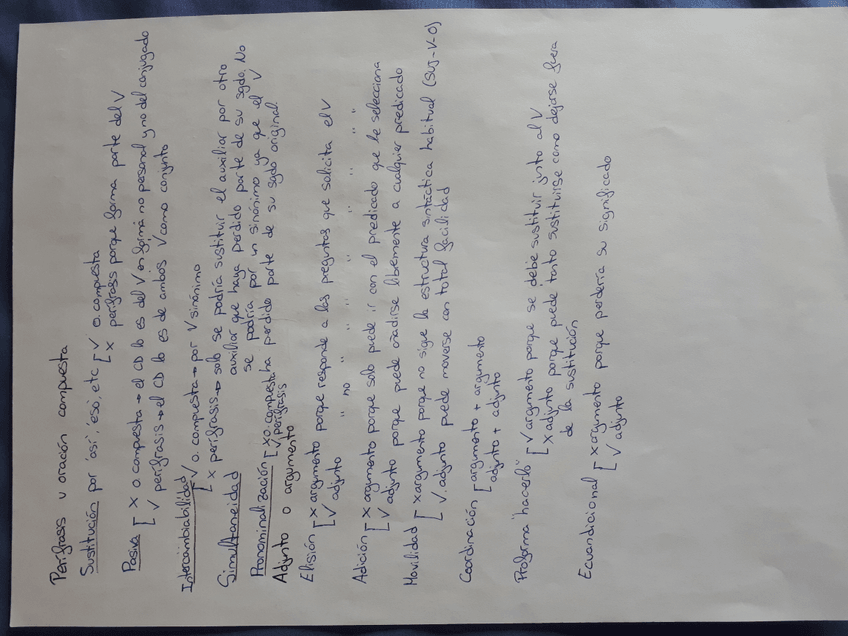 Perífrasis u oración compuesta
Sustitución por 'así', 'eso', etc [ ✓ o. compuesta
x perífrasis porque forma parte del V
Pasiva [ x o. compuesta → el CD lo es del V en forma no personal y no del conjugado
✓ perífrasis → el CD lo es de ambos V como conjunto
Intercambiabilidad [ ✓ o. compuesta → por V sinónimo
x perífrasis → solo se podría sustituir el auxiliar por otro
auxiliar que haya perdido parte de su sgdo. No
se podría por un sinónimo ya que el V
ha perdido parte de su sgdo original
Simultaneidad
Pronominalización [ x o. compuesta
✓ perífrasis
Adjunto o argumento
Elisión [ x argumento porque responde a las preguntas que solicita el V
✓ adjunto " no " " " " " " "
Adición [ x argumento porque solo puede ir con el predicado que le selecciona
✓ adjunto porque puede añadirse libremente a cualquier predicado
Movilidad [ x argumento porque no sigue la estructura sintáctica habitual (Suj-V-O)
✓ adjunto puede moverse con total facilidad
Coordinación [ argumento + argumento
adjunto + adjunto
Proforma "hacerlo" [ ✓ argumento porque se debe sustituir junto al V
x adjunto porque puede tanto sustituirse como dejarse fuera
de la sustitución
Ecuandicional [ x argumento porque perdería su significado
✓ adjunto